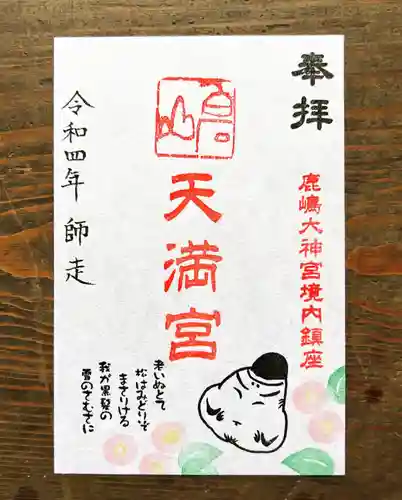 奉拝
鹿嶋大神宮境内鎮座
嶋
天満宮
令和四年 師走
老いぬとて
松はみどりぞ
まさりける
我が黒髪の
雪のさむさに